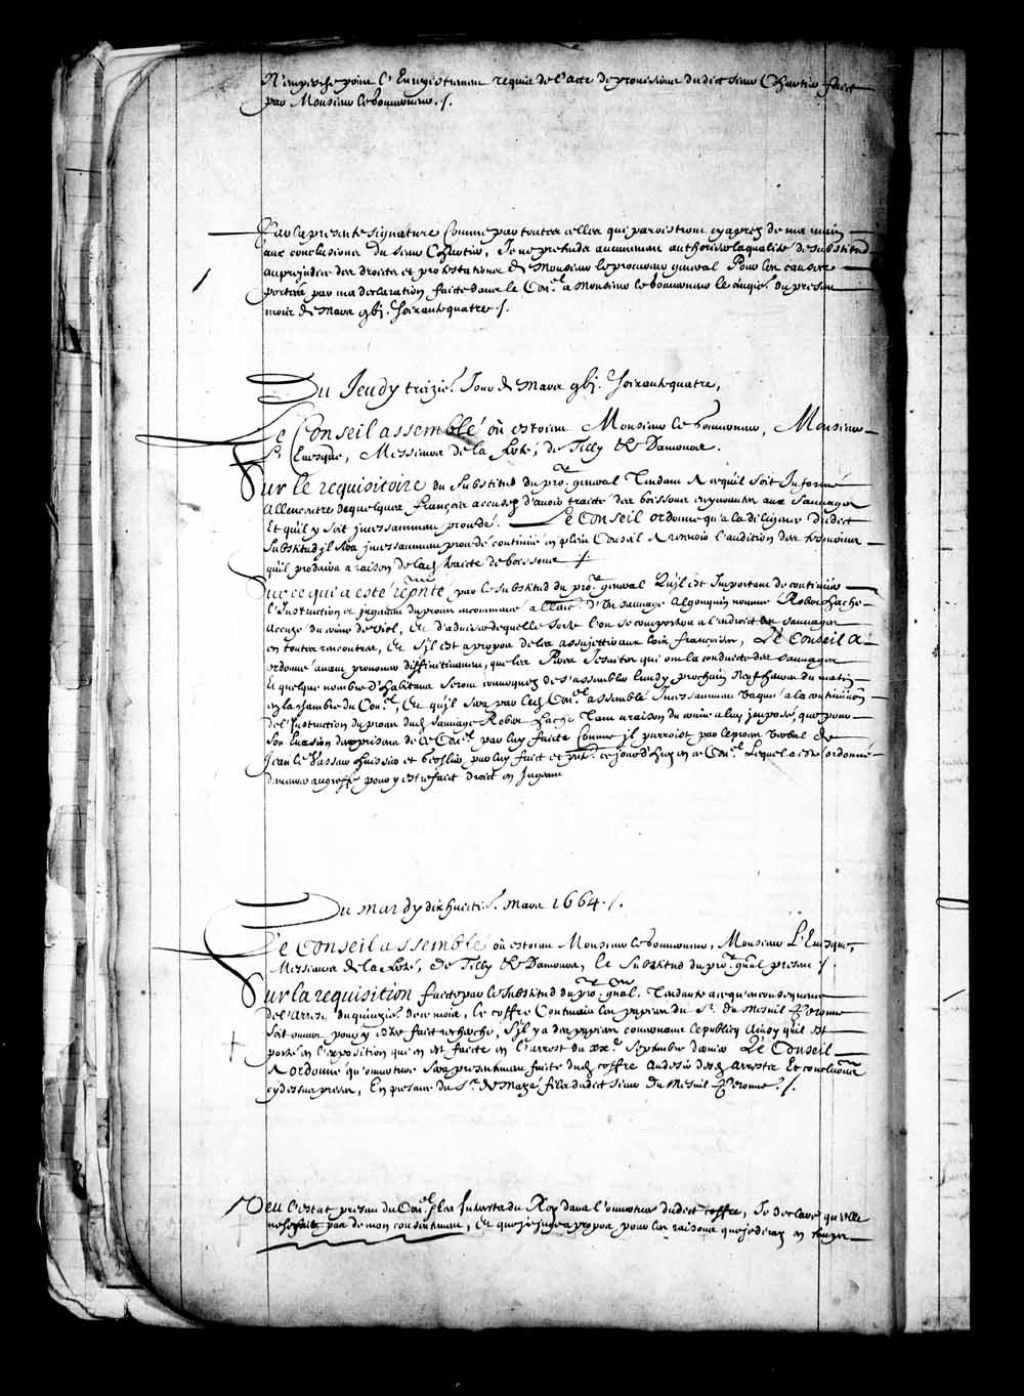 N'empesche point l'Enregistrement requis de l'acte de provisions dudict sieur Chartier faict
par Monsieur le Gouverneur ./.
Par la presente signature comme par toutes celles qui paroistront cy apres de ma main
aux conclusions du sieur Chartier, Je ne pretends aucunement authoriser la qualité de substitud
au prejudice des droits et protestations de Monsieur le procureur general Pour les causes
portées par ma declaration faicte dans le Con.el a Monsieur le Gouverneur le du present
mois de Mars gbj. soixante quatre ./.
Du Jeudy treizie.e Jour de Mars gbj. soixante quatre,
Le Conseil assemblé où estoient Monsieur le Gouverneur, Monsieur
L'Evesque, Messieurs de la Ferté, de Tilly et Damours.
Sur le requisitoire du Substitud du pro.r general Tendant A ce qu'il soit Informé
Allencontre de quelques françois accusez d'avoir traicté des boissons enyvrantes aux Sauvages
Et qu'il y soit incessamment pourveu. Le Conseil ordonne qu'a la diligence dudict
Substitud il sera incessamment procedé continué en plein Conseil A l'audition des tesmoins
qu'il produira a raison de lad. traicte de boissons
Sur ce qui a esté rep.nté par le Substitud du pro.r general Qu'il est Important de continuer
l'Instruction et jugement du procez commencé a d'Un sauvage Algonquin nommé Robert hache
Accuzé du crime de viol, Et d'adviser de quelle sorte l'on se comportera a l'endroit des sauvages
en toutes rencontres, Et s'il est a propos de les assujettir aux loix françoises, Le Conseil A
ordonné avant prononcer diffinitivement, que les Peres Jesuites qui ont la conduicte des sauvages
Et quelque nombre d'habitans seront convoquez de s'assembler lundy prochain Neuf heures du matin
en la chambre du Con.el, Et qu'il sera par led. Con.el assemblé Incessamment vaqué a la continuaon
de l'Instruction du procez dud. sauvage Robert hache Tant a raison du crime a luy imposé, que pour
son Evasion des prisons de ce Con.el par luy faicte comme il paroist par le procez verbal de
Jean le Vasseur huissier et geollier par luy faict et ce jourd'huy en ce Con.el Lequel a esté ordonné
demeurer au greffe pour y estre faict droict en jugeant
Du mardy dix huictie.e Mars 1664 ./.
Le Conseil assemblé où estoient Monsieur le Gouverneur, Monsieur L'Evesque,
Messieurs de la Ferté, de Tilly et Damours, le Substitud du pro.r gnal present ./.
Sur la requisition faicte par le Substitud du pro.r gnal. Tendante a ce qu'en consequence
de l'Arrest du quinzie.e de ce mois, le coffre Contenant les papiers du S.r du Mesnil Peronne
soit ouvert pour y estre faict recherche, s'il y a des papiers concernans le publicq Ainsy qu'il est
porté en l'exposition qui en est faicte en l'arrest du xx.e Septembre dernier Le Conseil
A ordonné qu'ouverture sera presentement faicte dud. coffre Au desir desd. arrests Et conclusions
cy dessus prises, En presence du S.r de Mazé filz dudict sieur du Mesnil Peronne ./.
Veu l'estat present du Con.el les Interests du Roy dans l'ouverture dudict coffre, Je declare qu'elle
ne se faict pas de mon consentement, Et que je juge a propos, pour les raisons que je diray en temps